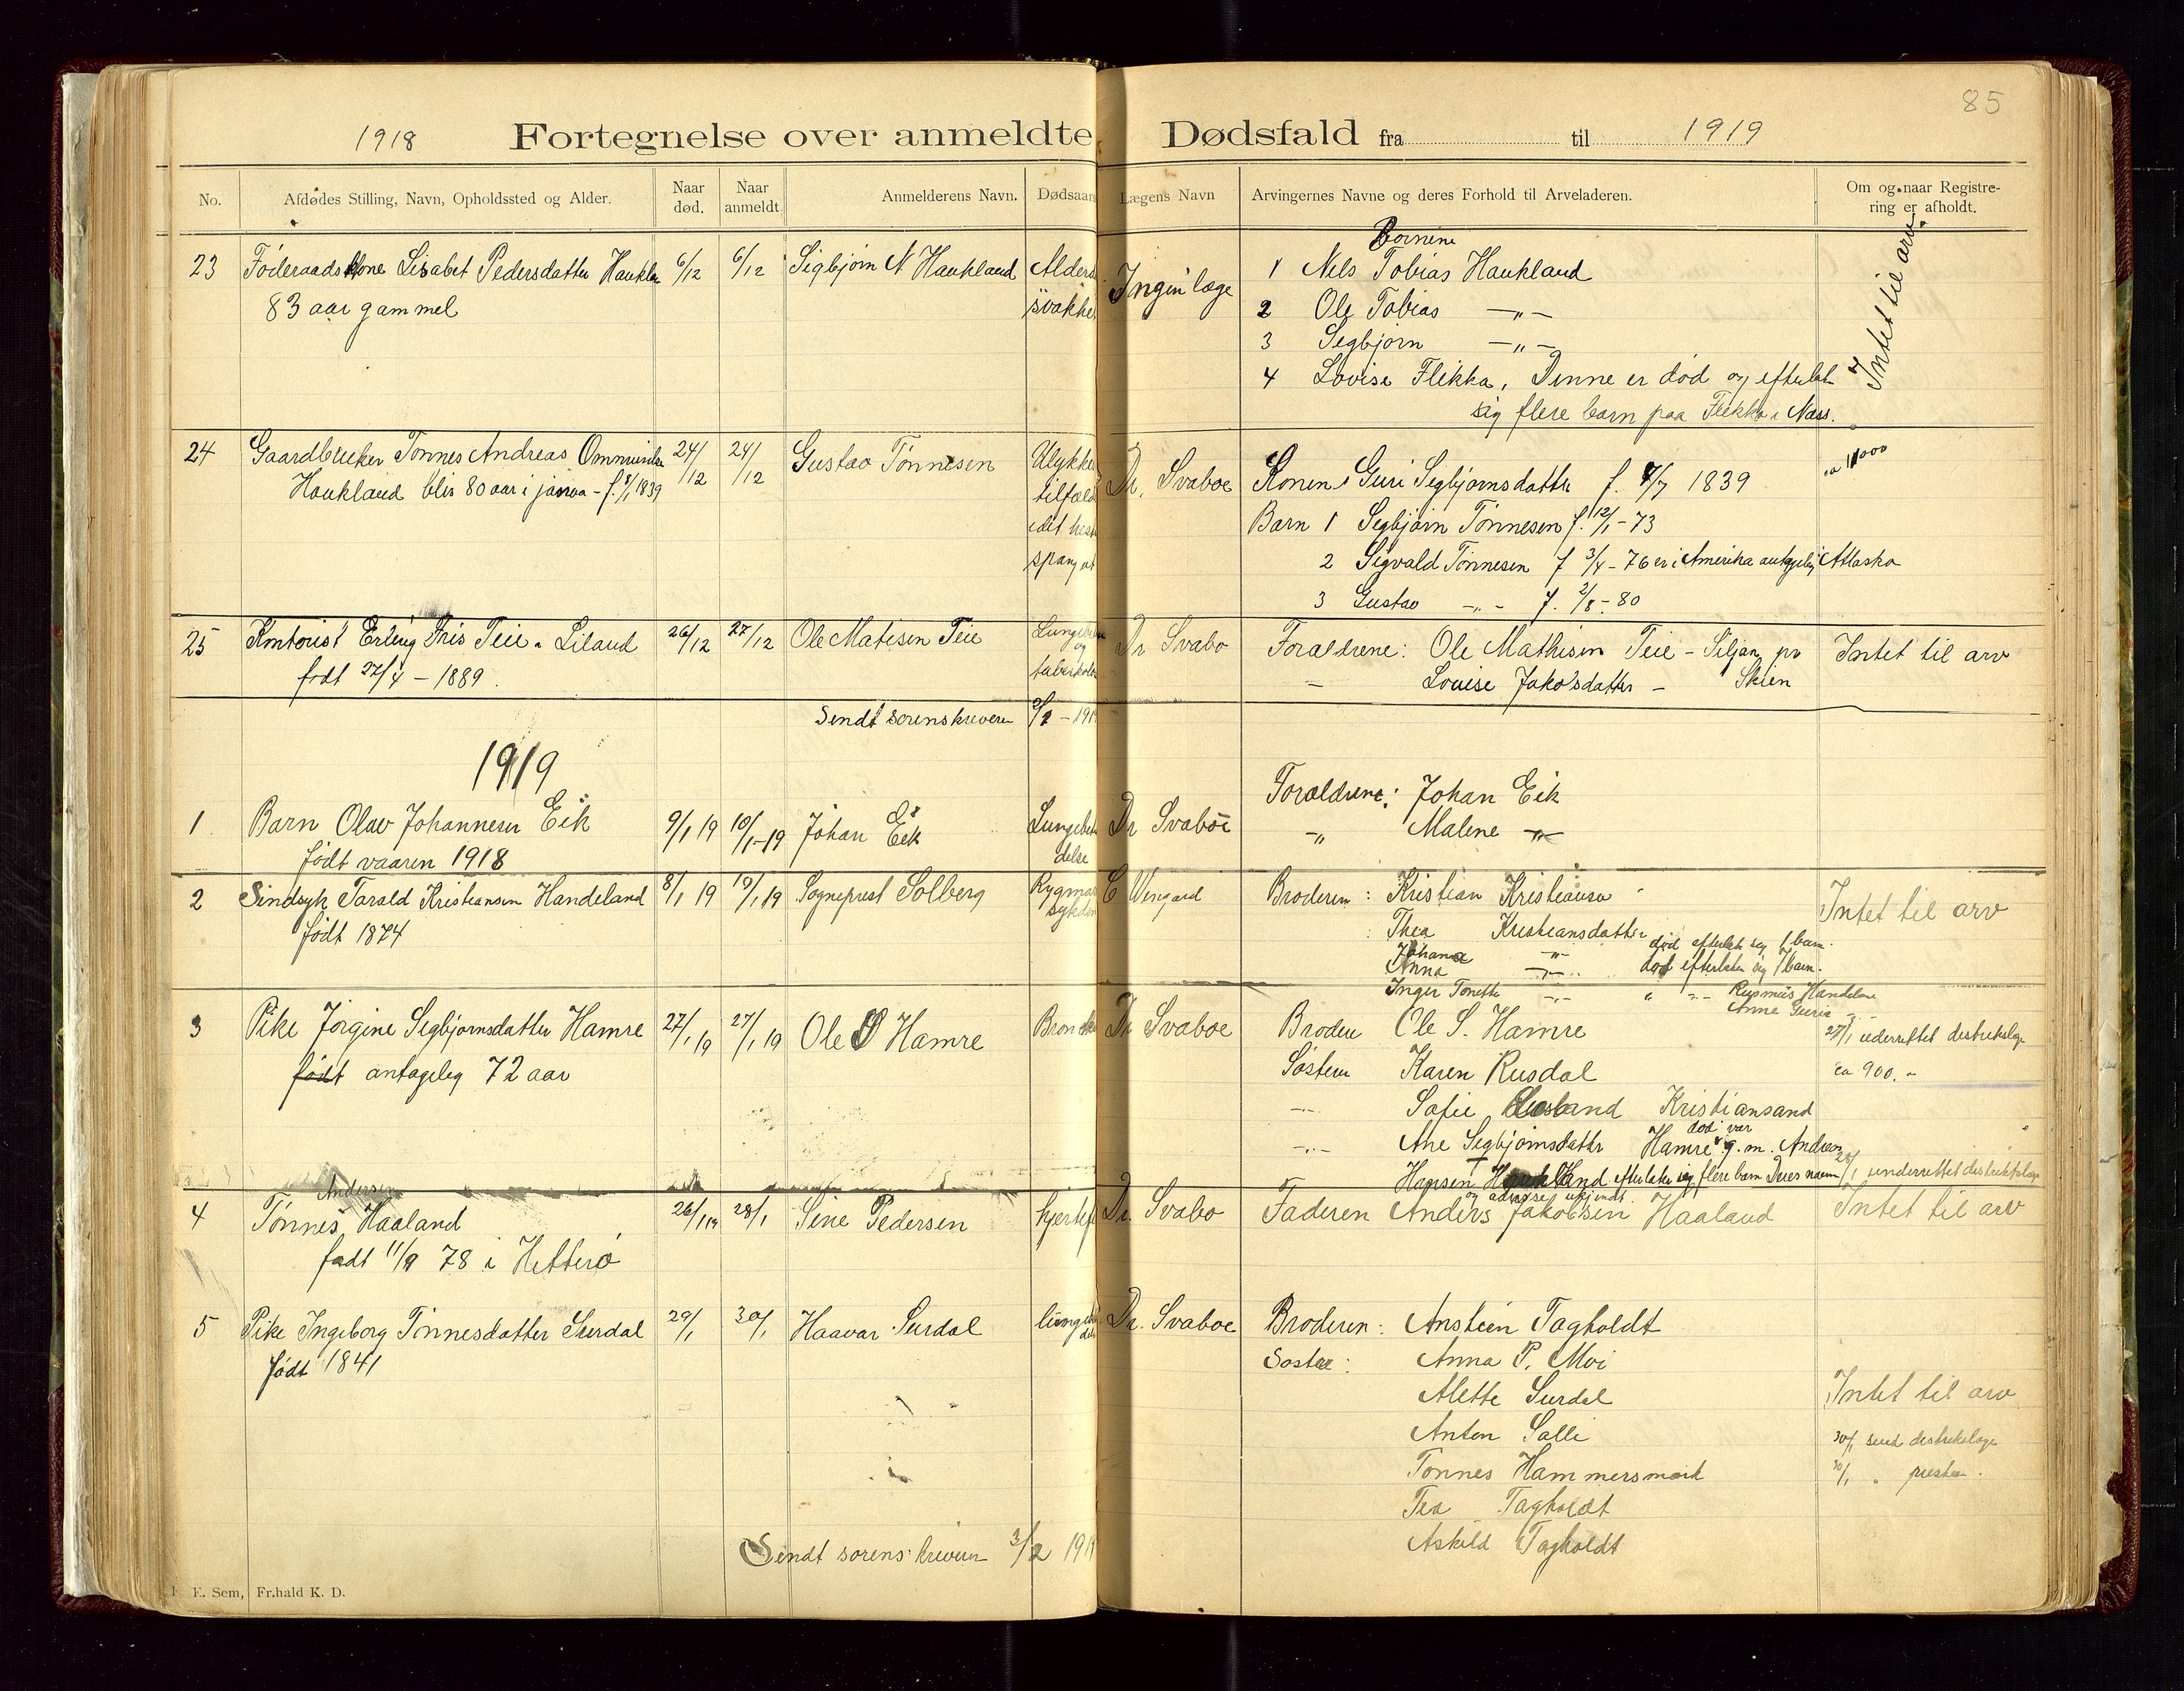 85
1918 Fortegnelse over anmeldte Dødsfald fra til 1919
No. Afdødes Stilling, Navn, Opholdssted og Alder. Naar død. Naar anmeldt. Anmelderens Navn. Dødsaar Lægens Navn Arvingernes Navne og deres Forhold til Arveladeren. Om og naar Registrering er afholdt.
Børnene
23 Føderaadskone Lisabet Pedersdatter Haukla 6/12 6/12 Sigbjørn N Haukland Alders Ingen læge 1 Nils Tobias Haukland Intet til arv
83 aar gammel svakhe 2 Ole Tobias —„—
3 Segbjørn —„—
4 Lovise Flikka, Denne er død og efterlat
sig flere barn paa Flikka i Næss.
24 Gaardbruker Tønnes Andreas 24/12 24/12 Gustav Tønnesen Ulykkes Dr. Svaboe Konen Guri Segbjørnsdatter f. 7/7 1839 ca 11000
Haukland blir 80 aar i janua - f. 8/1 1839 tilfæld Barn 1 Segbjørn Tønnesen f. 12/1 - 73
2 Sigvald Tønnesen f 3/4 - 76 er i Amerika antagelig Allaska
spang
3 Gustav —„— f. 2/8 - 80
25 Kmtorist Erling Fris Teie - Liland 26/12 27/12 Ole Matisen Teie Dr Svabo Forældrene: Ole Mathisen Teie - Siljan pr Intet til arv
født 27/4 - 1889. — Louise Jakobsdatter — Skien
Sendt sorenskriveren 2/1 - 191
1919
Forældrene: Johan Eik
1 Barn Olav Johannesen Eik 9/1 19 10/1-19 Johan Eik Lungebet Dr Svaboe „ Malene —„—
født vaaren 1918 delse
2 Sindsyk Tarald Kristiansen Handeland 8/1 19 19/1 19 Sogneprest Solberg Rygmar Wengard Broderen: Kristian Kristiansen Intet til arv
født 1874 sykdom : Thea Kristiansdatter
Johana —„— død efterlat sig 1 barn.
Anna —„— død efterlater sig 7 barn.
Inger Tonette —„— „ —„— Rasmus Handeland
Anne Guria
3 Pike Jørgine Segbjørnsdatter Hamre 27/1 19 27/1 19 Ole S Hamre Dr Svaboe Broder Ole S. Hamre 27/1 underrettet distriktslæge
født antagelig 72 aar Søstern Karen Rusdal ca 900.-
—„— Sofie Kristiansand
død var
—„— Ane Segbjørnsdatter Hamre g.m. Andreas
Hansen efterlater sig flere barn Deres navn 28/1 underrettet distriktslæge
og adresse ukjendt.
Andersen
4 Tønnes Haaland 26/1 19 28/1 Sine Pedersen Dr. Svabo Faderen Anders Jakobsen Haaland Intet til arv
født 11/9 78 i Hitterø
5 Pike Ingeborg Tønnesdatter Surdal 29/1 30/1 Haavar Surdal Dr. Svaboe Broderen: Anstein Tagholdt
født 1841 Søster: Anna P. Moi
Alette Surdal Intet til arv
Anten Salli 30/1 send distriktslæge
Tønnes Hammersmark 30/1 „ presten.
Tea Tagholdt
Askild Tagholdt
Sendt sorenskriveren 3/2 191
E. Sem, Fr.hald K. D.